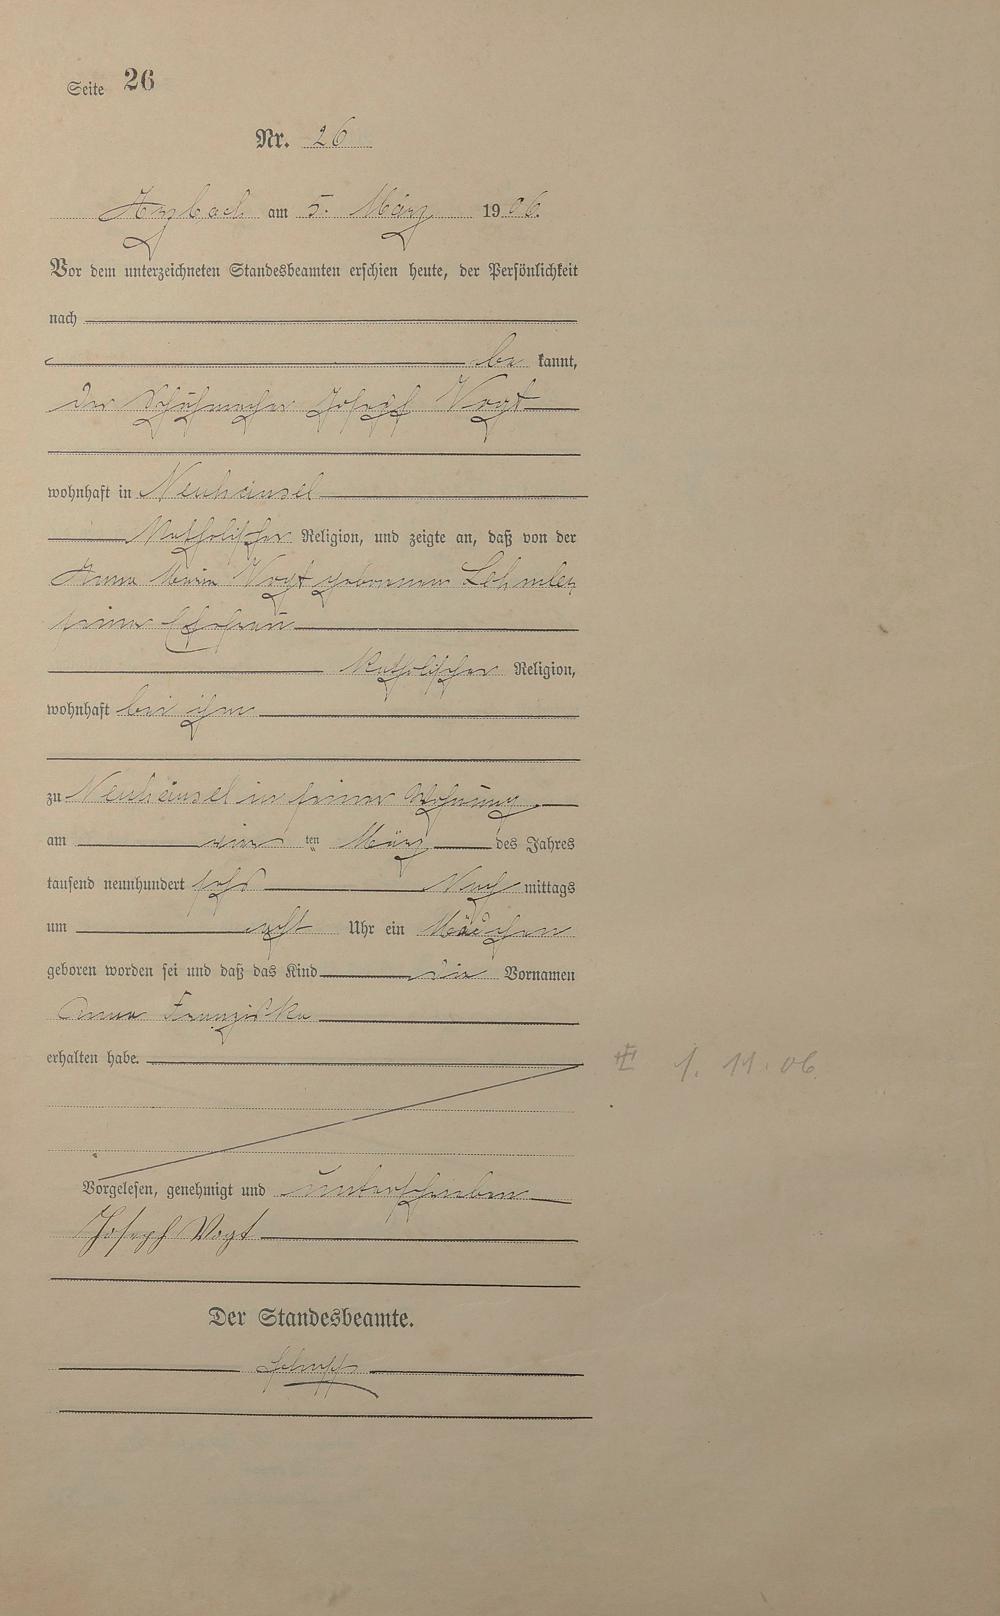 Seite 26
Nr. 26
Arzbach am 5. März 1906.
Vor dem unterzeichneten Standesbeamten erschien heute, der Persönlichkeit
nach
be kannt,
der Schuhmacher Joseph Vogt
wohnhaft in Neuhäusel
katholischer Religion, und zeigte an, daß von der
Anna Maria Vogt geborenen Lehmler,
seiner Ehefrau
katholischer Religion,
wohnhaft bei ihm
zu Neuhäusel in seiner Wohnung
am vier ten März des Jahres
tausend neunhundert sechs Nach mittags
um acht Uhr ein Mädchen
geboren worden sei und daß das Kind die Vornamen
Anna Franziska
erhalten habe.
1. 11. 06
Vorgelesen, genehmigt und unterschrieben
Joseph Vogt
Der Standesbeamte.